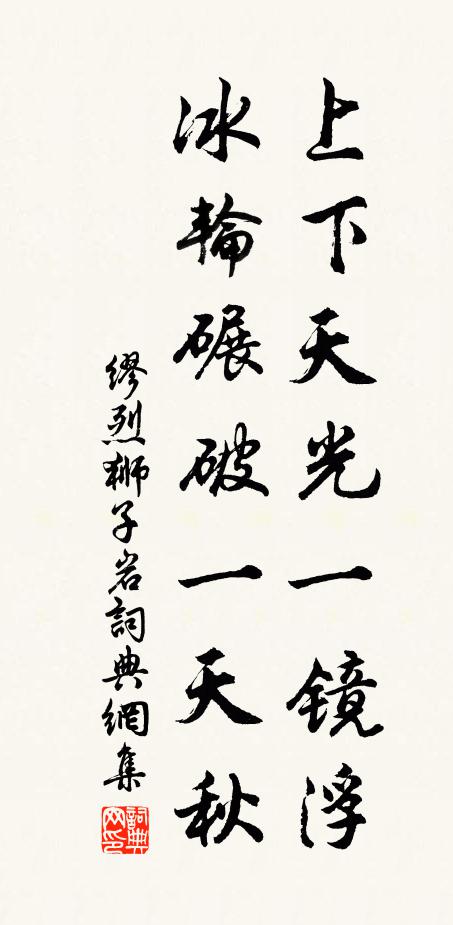 上下天光一镜浮
冰輪碾破一天秋
繆烈獅子岩詞典網集
詞典网印